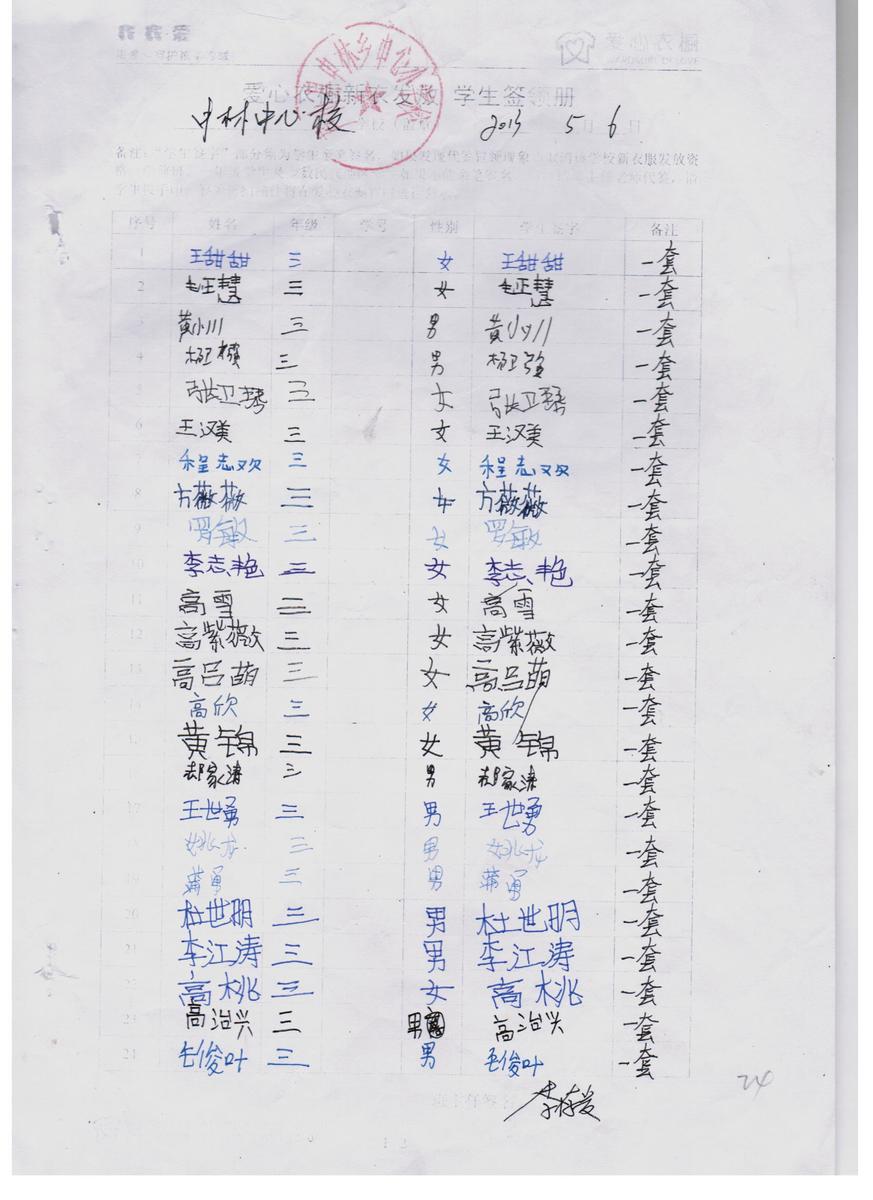 爱心衣橱
爱心衣橱新衣发放 学生签领册
中林中心校 2013 5月6日
序号 姓名 年级 学号 性别 学生签字 备注
1 王甜甜 三 女 王甜甜 一套
2 慧 三 女 慧 一套
3 黄小川 三 男 黄小川 一套
4 杨卫 三 男 杨卫强 一套
5 张卫琴 三 女 张卫琴 一套
6 王汉美 三 女 王汉美 一套
7 程志欢 三 女 程志欢 一套
8 方薇薇 三 女 方薇薇 一套
9 罗敏 三 女 罗敏 一套
10 李志艳 三 女 李志艳 一套
11 高雪 三 女 高雪 一套
12 高紫薇 三 女 高紫薇 一套
13 高吕萌 三 女 高吕萌 一套
14 高欣 三 女 高欣 一套
15 黄锦 三 女 黄锦 一套
家涛 三 男 家涛 一套
17 王世勇 三 男 王世勇 一套
18 姚龙 三 男 姚龙 一套
19 蒋勇 三 男 蒋勇 一套
20 杜世明 三 男 杜世明 一套
21 李江涛 三 男 李江涛 一套
22 高桃 三 女 高桃 一套
23 高治兴 三 男 高治兴 一套
24 毛俊叶 三 男 毛俊叶 一套
24